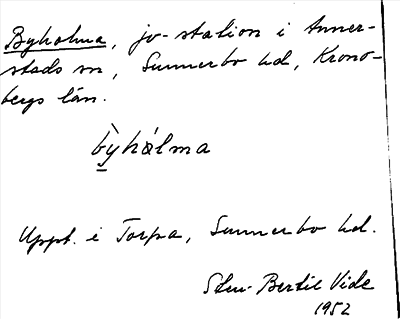 Byholma, jv-station i Anner-
stads sn, Sunnerbo hd, Krono-
bergs län.
b̠ỳhålma
Uppt. i Torpa, Sunnerbo hd.
Sten-Bertil Vide
1952